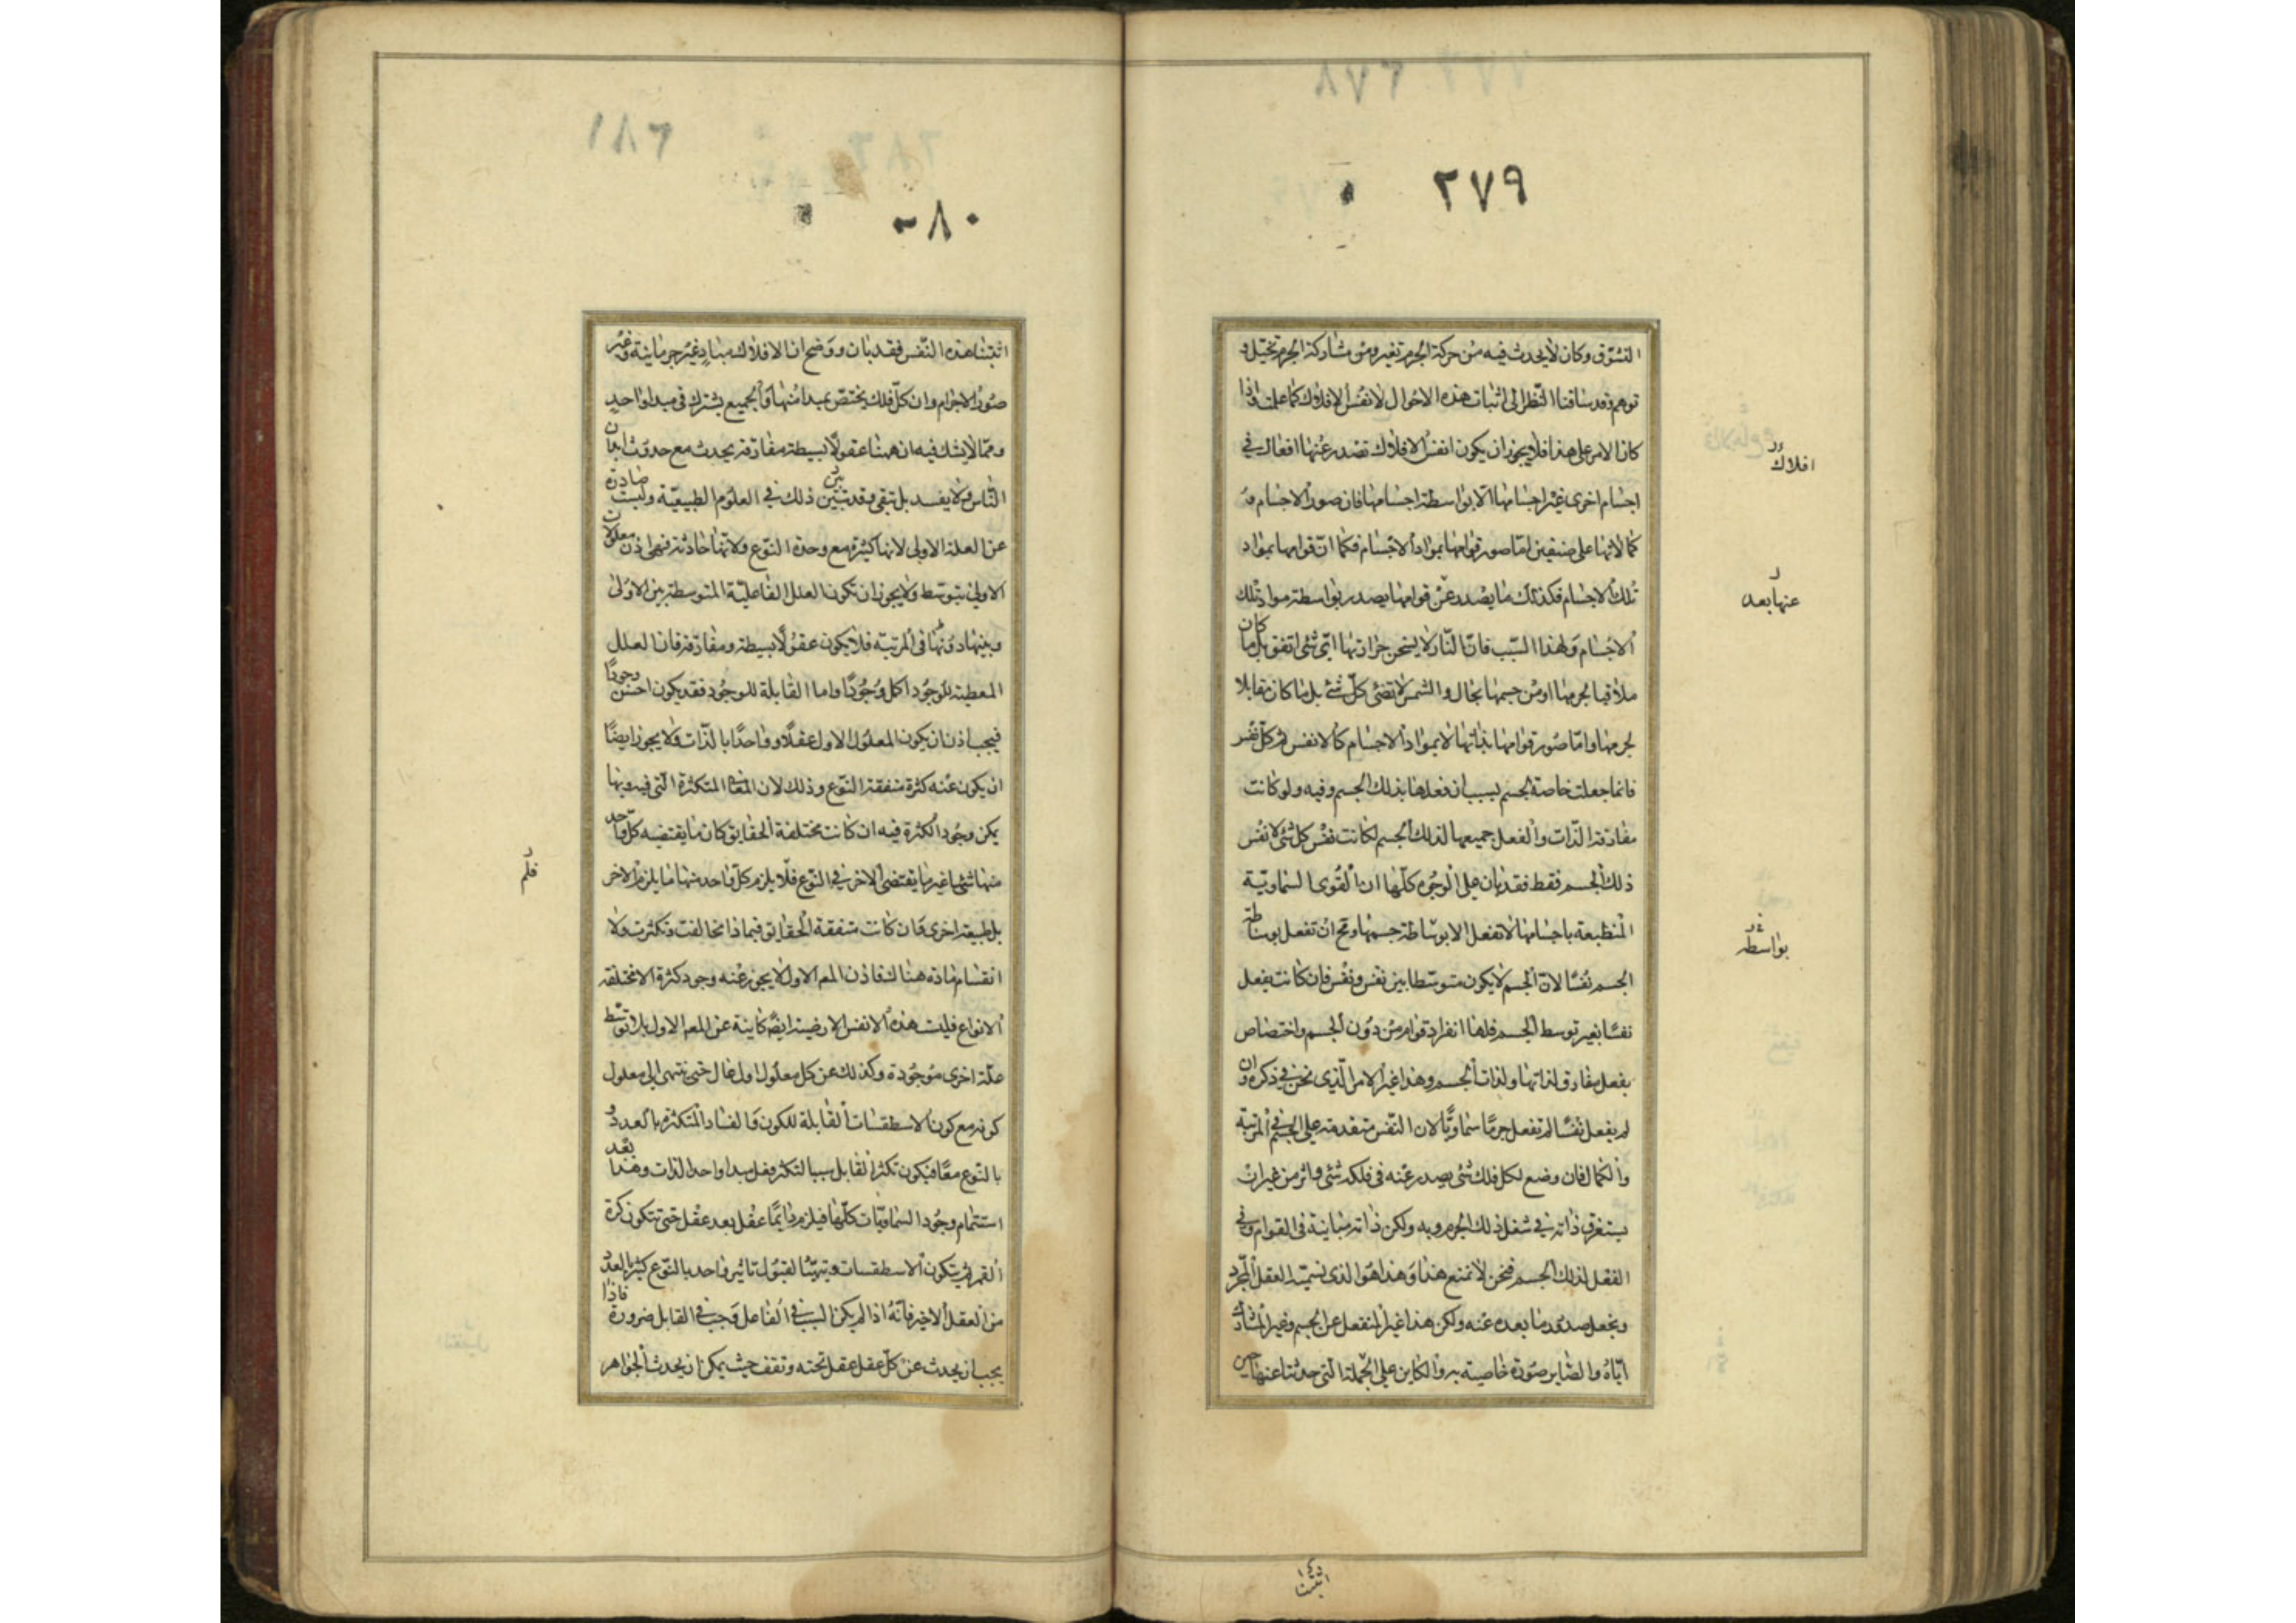 ٢٧٩
التشوّق وكان لا يحدث فيه من حركة الجرم تغير ومن مشاركة الجرم تخيّل و
توهم وقد ساقنا النّظر الى اثبات هذه الاحوال لانفس الافلاك كما علمت واذا
كان الامر على هذا فلا يجوز ان يكون انفس الافلاك تصدر عنها افعال في
افلاك
اجسام اخرى غير اجسامها الّا بواسطة اجسامها فان صور الاجسام و
كمالاتها على صنفين امّا صور قوامها بمواد الاجسام فكما انّ قوامها بمواد
تلك الاجسام فكذلك ما يصدر عن قوامها يصدر بواسطة مواد تلك
عنها بعد
الاجسام ولهذا السّبب فانّ النّار لا يسخن حرارتها ايّ شئ اتفق بل ما كان
ملاقيا لجرمها او من جسمها بحال والشمس لا تضئ كلّ شئ بل ما كان مقابلا
لجرمها وامّا صور قوامها بذاتها لا بمواد الاجسام كالانفس ثم كلّ نفس
فانما جعلت خاصة لجسم بسبب ان فعلها بذلك الجسم وفيه ولو كانت
مفارقة الذّات والفعل جميعها لذلك الجسم لكانت نفس كل شئ لا نفس
ذلك الجسم فقط فقد بان على الوجوه كلّها ان القوى السّماويّة
المنطبعة باجسامها لا تفعل الا بوساطة جسمها ومح ان تفعل بوساطة
بواسطه
الجسم نفسًا لانّ الجسم لا يكون متوسّطا بين نفس ونفس فان كانت يفعل
نفسًا بغير توسط الجسم فلها انفراد قوام من دون الجسم واختصاص
بفعل مفارق لذاتها ولذات الجسم وهذا غير الامر الّذى نحن في ذكره وان
لم يفعل نفسًا لم تفعل جرمًا سماويًّا لان النّفس متقدمة على الجسم في المرتبة
والكمال فان وضع لكل فلك شئ يصدر عنه في فلكه شئ واثر من غير ان
يستغرق ذاته في شغل ذلك الجرم وبه ولكن ذاته مباينة في القوام وفي
الفعل لذلك الجسم فنحن لا نمنع هذا وهذا هو الذى نسميّه العقل المجرّد
ونجعل صدور ما بعده عنه ولكن هذا غير المنفعل عن الجسم وغير المشارك
ايّاه والصّاير صورة خاصية به والكاين على الجملة الّتى حدثنا عنها حين
اثبتنا
٢٨٠
اثبتنا هذه النّفس فقد بان ووضح ان الافلاك مبادٍ غير جرمانية وغير
صور الاجرام وان كلّ فلك يختصّ بمبدا منها والجميع يشترك في مبدا واحدٍ
وممّا لا يشك فيه ان ههنا عقولًا بسيطة مفارقة يحدث مع حدوث ابدان
النّاس ولا يفسد بل تبقى وقد تبيّن ذلك في العلوم الطبيعيّة وليست صادرة
عن العلة الاولى لانها كثيرة مع وحدة النّوع ولانّها حادثة فهى اذن معلولات
الاولى بتوسّط ولا يجوز ان تكون العلل الفاعليّة المتوسطة بين الاولى
وبينها دونها في المرتبة فلا يكون عقولًا بسيطة ومفارقة فان العلل
المعطية للوجود اكمل وجودًا واما القابلة للوجود فقد يكون اخسّ وجودًا
فيجب اذن ان يكون المعلول الاول عقلًا واحدًا بالذّات ولا يجوز ايضًا
ان يكون عنه كثرة متفقة النّوع وذلك لان المعانى المتكثرة الّتى فيه وبها
يمكن وجود الكثرة فيه ان كانت مختلفة الحقايق كان ما يقتضيه كلّ واحد
منها شئ غير ما يقتضى الاخر في النّوع فلا يلزم كلّ واحد منها ما يلزم الاخر
فلم
بل طبيعة اخرى وان كانت متفقة الحقايق فبماذا تخالفت وتكثرت ولا
انقسام مادة هناك فاذن المعلم الاول لا يجوز عنه وجود كثرة الا مختلفة
الانواع فليست هذه الانفس الارضية ايضًا كاينة عن المعلم الاول بلا توسّط
علّة اخرى موجودة وكذلك عن كل معلول اول عال حتى ينتهى الى معلول
كونه مع كون الاسطقسات القابلة للكون والفساد المتكثرة بالعدد و
بالنّوع معًا فيكون تكثر القابل سببا لتكثر فعل مبدا واحد الذات وهذا بعد
استتمام وجود السّماويّات كلّها فيلزم دايمًا عقل بعد عقل حتى تتكون كرة
القمر ثم يتكون الاسطقسات وتتهيّئا لقبول تاثير واحد بالنّوع كثير بالعدد
من العقل الاخير فانّه اذا لم يكن السبب في الفاعل وجب في القابل ضرورة فاذا
يجب ان يحدث عن كلّ عقل عقل تحته وتقف حيث يمكن ان يحدث الجواهر